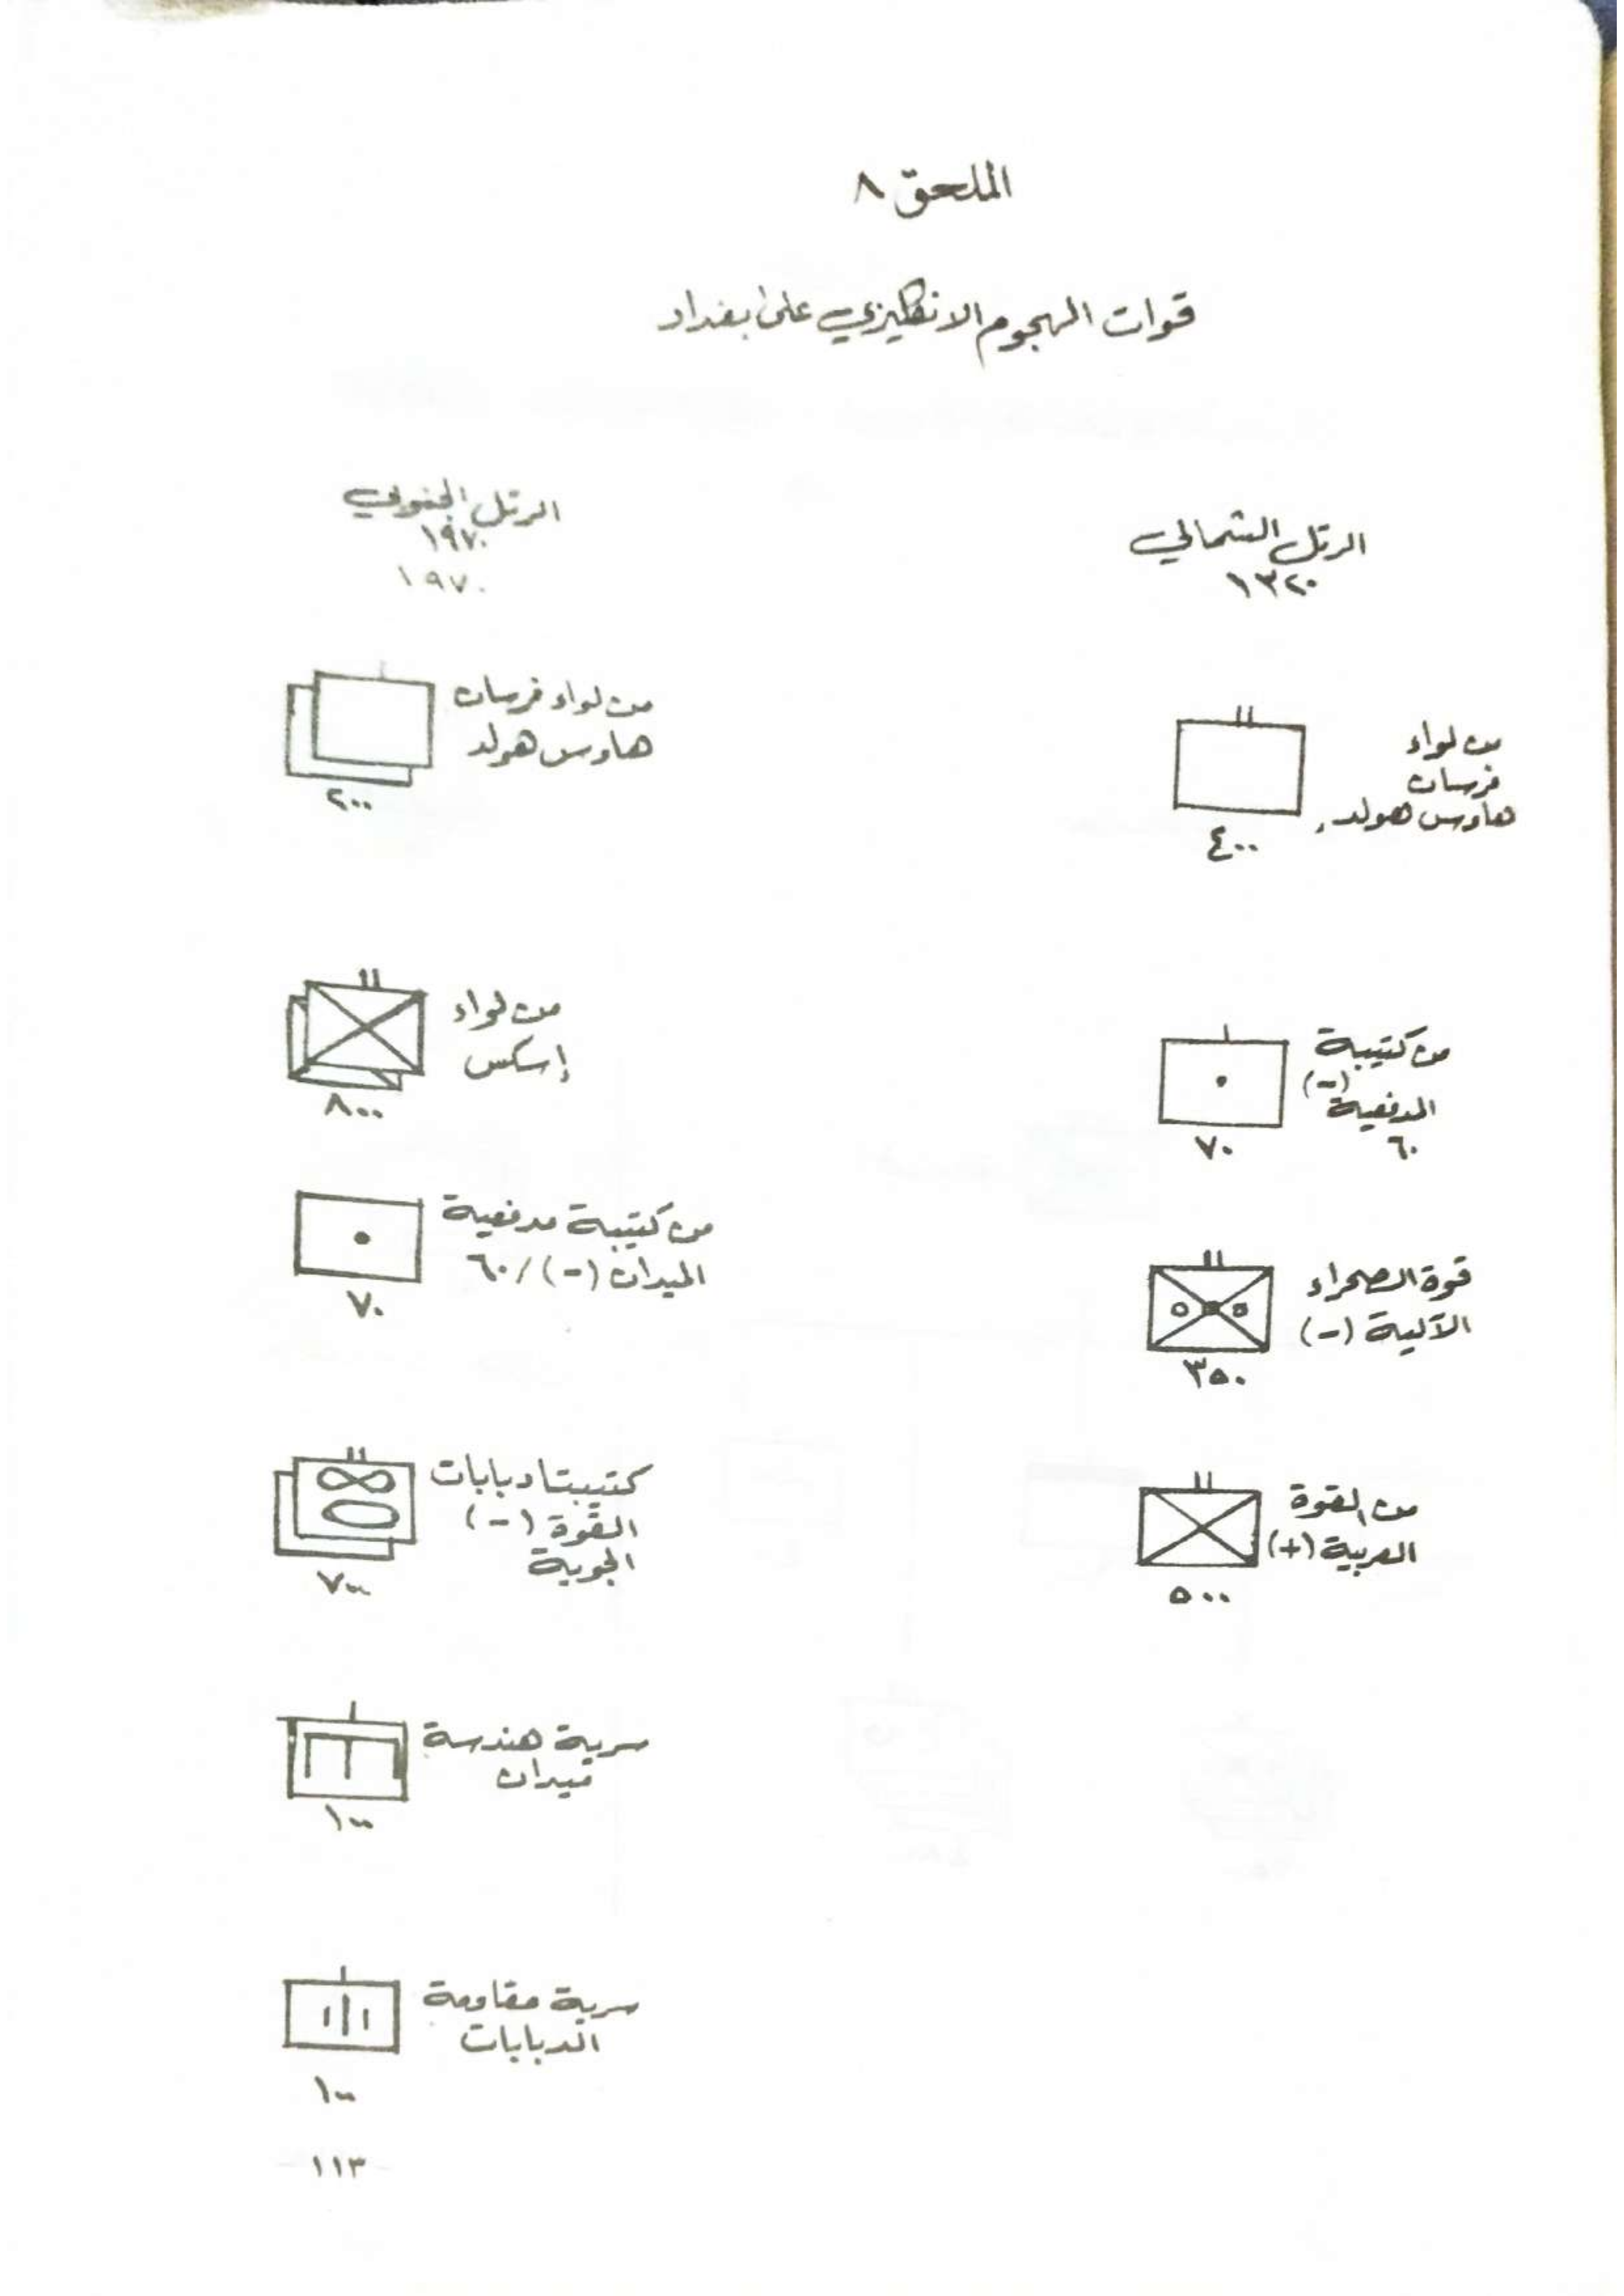 الملحق ٨
قوات الهجوم الانكليزي على بغداد
الرتل الشمالي
١٣٢٠
من لواء
فرسان
هاوس هولد
٤٠٠
من كتيبة
(-)
المدفعية
٦٠
٧٠
قوة الصحراء
الآلية (-)
٣٥٠
من القوة
العربية (+)
٥٠٠
الرتل الجنوبي
١٩٧٠
١٩٧٠
من لواء فرسان
هاوس هولد
٢٠٠
من لواء
إسكس
٨٠٠
من كتيبة مدفعية
الميدان (-) /٦٠
٧٠
كتيبتا دبابات
القوة (-)
الجوية
٧٠٠
سرية هندسة
ميدان
١٠٠
سرية مقاومة
الدبابات
١٠٠
١١٣